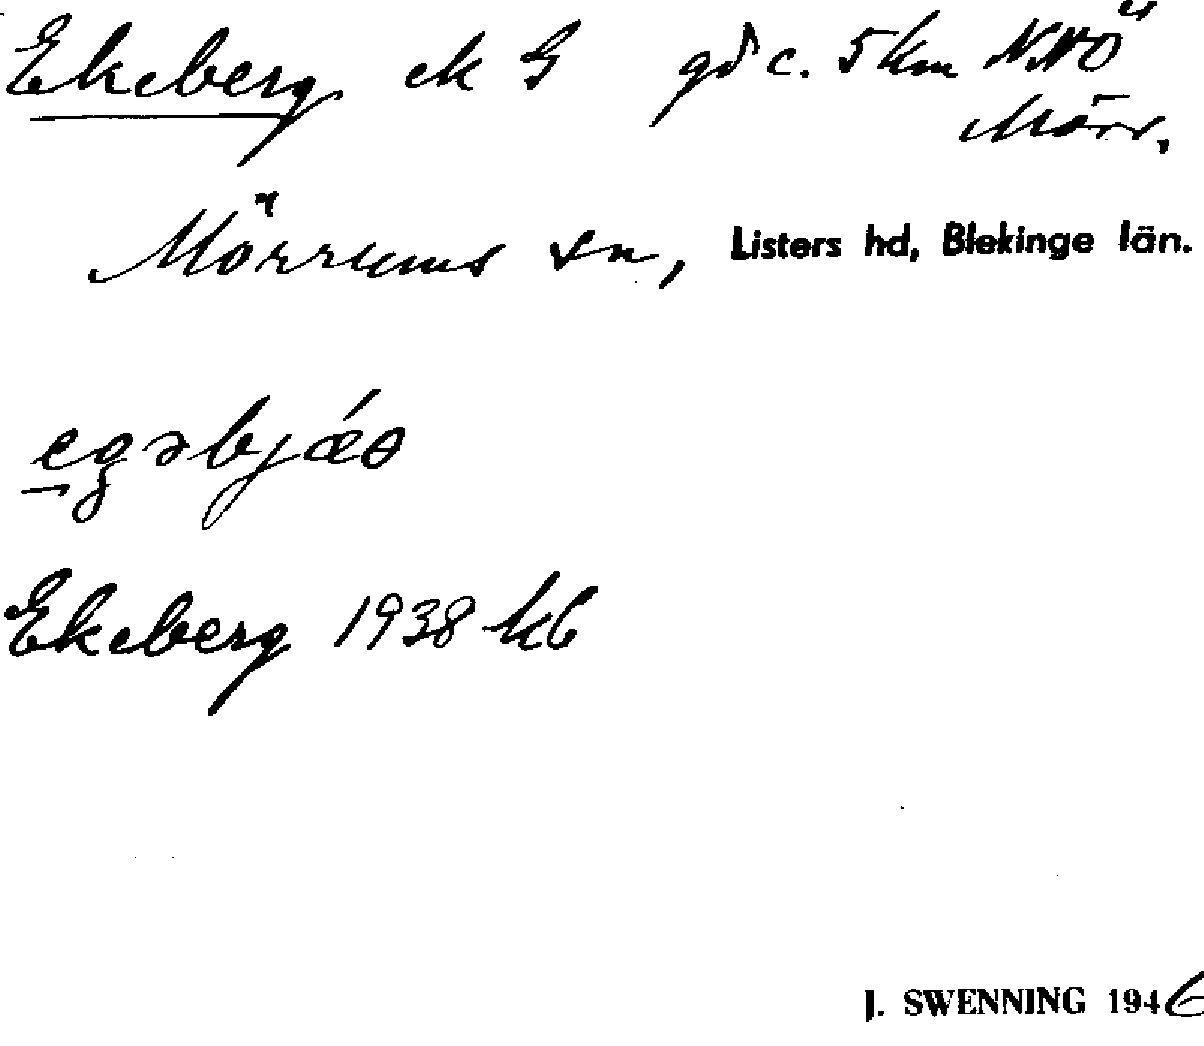 Ekeberg ek G gd c. 5 km NNÖ
Mörr.
Mörrums sn, Listers hd, Blekinge län.
Ekeberg 1938 kb
J. SWENNING 1946